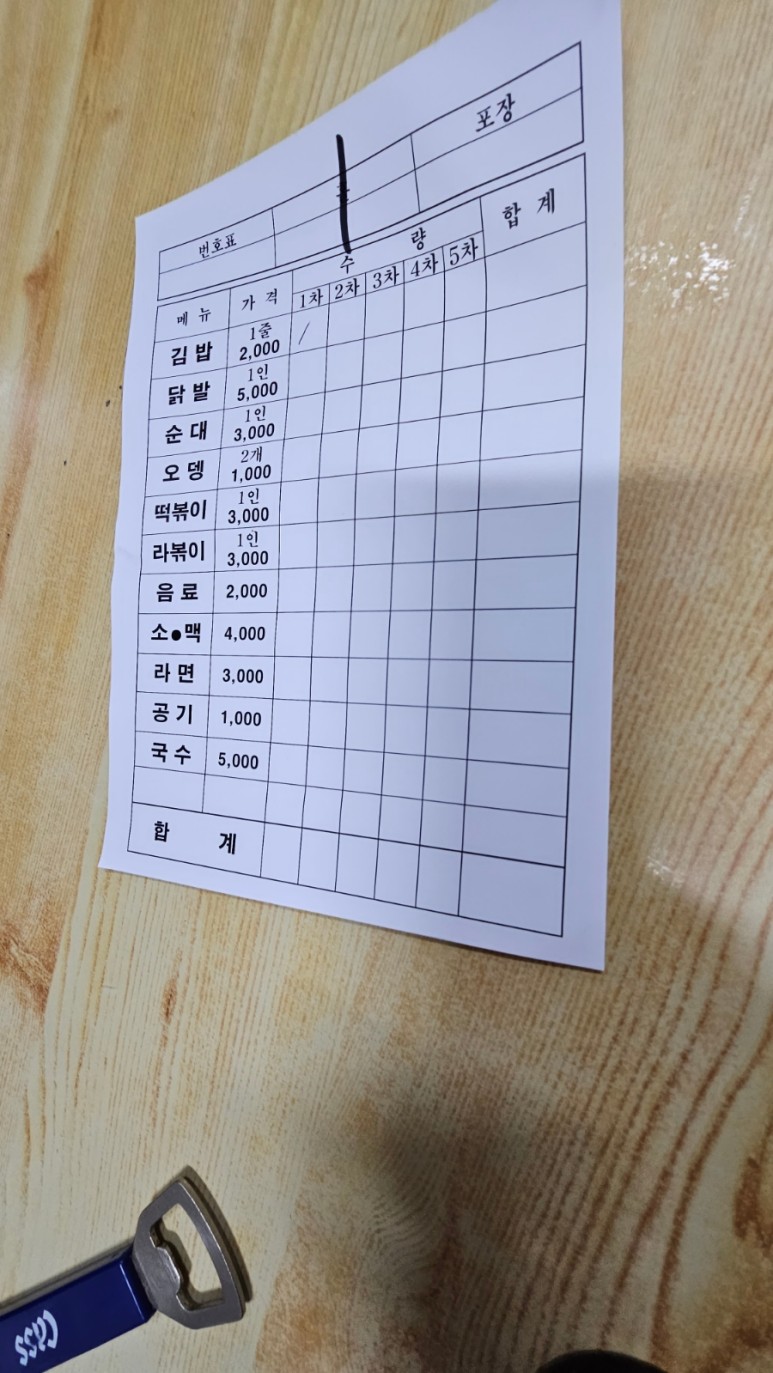 번호표 포장
메뉴 가격 수량 합계
1차 2차 3차 4차 5차
김밥 1줄 2,000 /
닭발 1인 5,000
순대 1인 3,000
오뎅 2개 1,000
떡볶이 1인 3,000
라볶이 1인 3,000
음료 2,000
소●맥 4,000
라면 3,000
공기 1,000
국수 5,000
합계
Cass